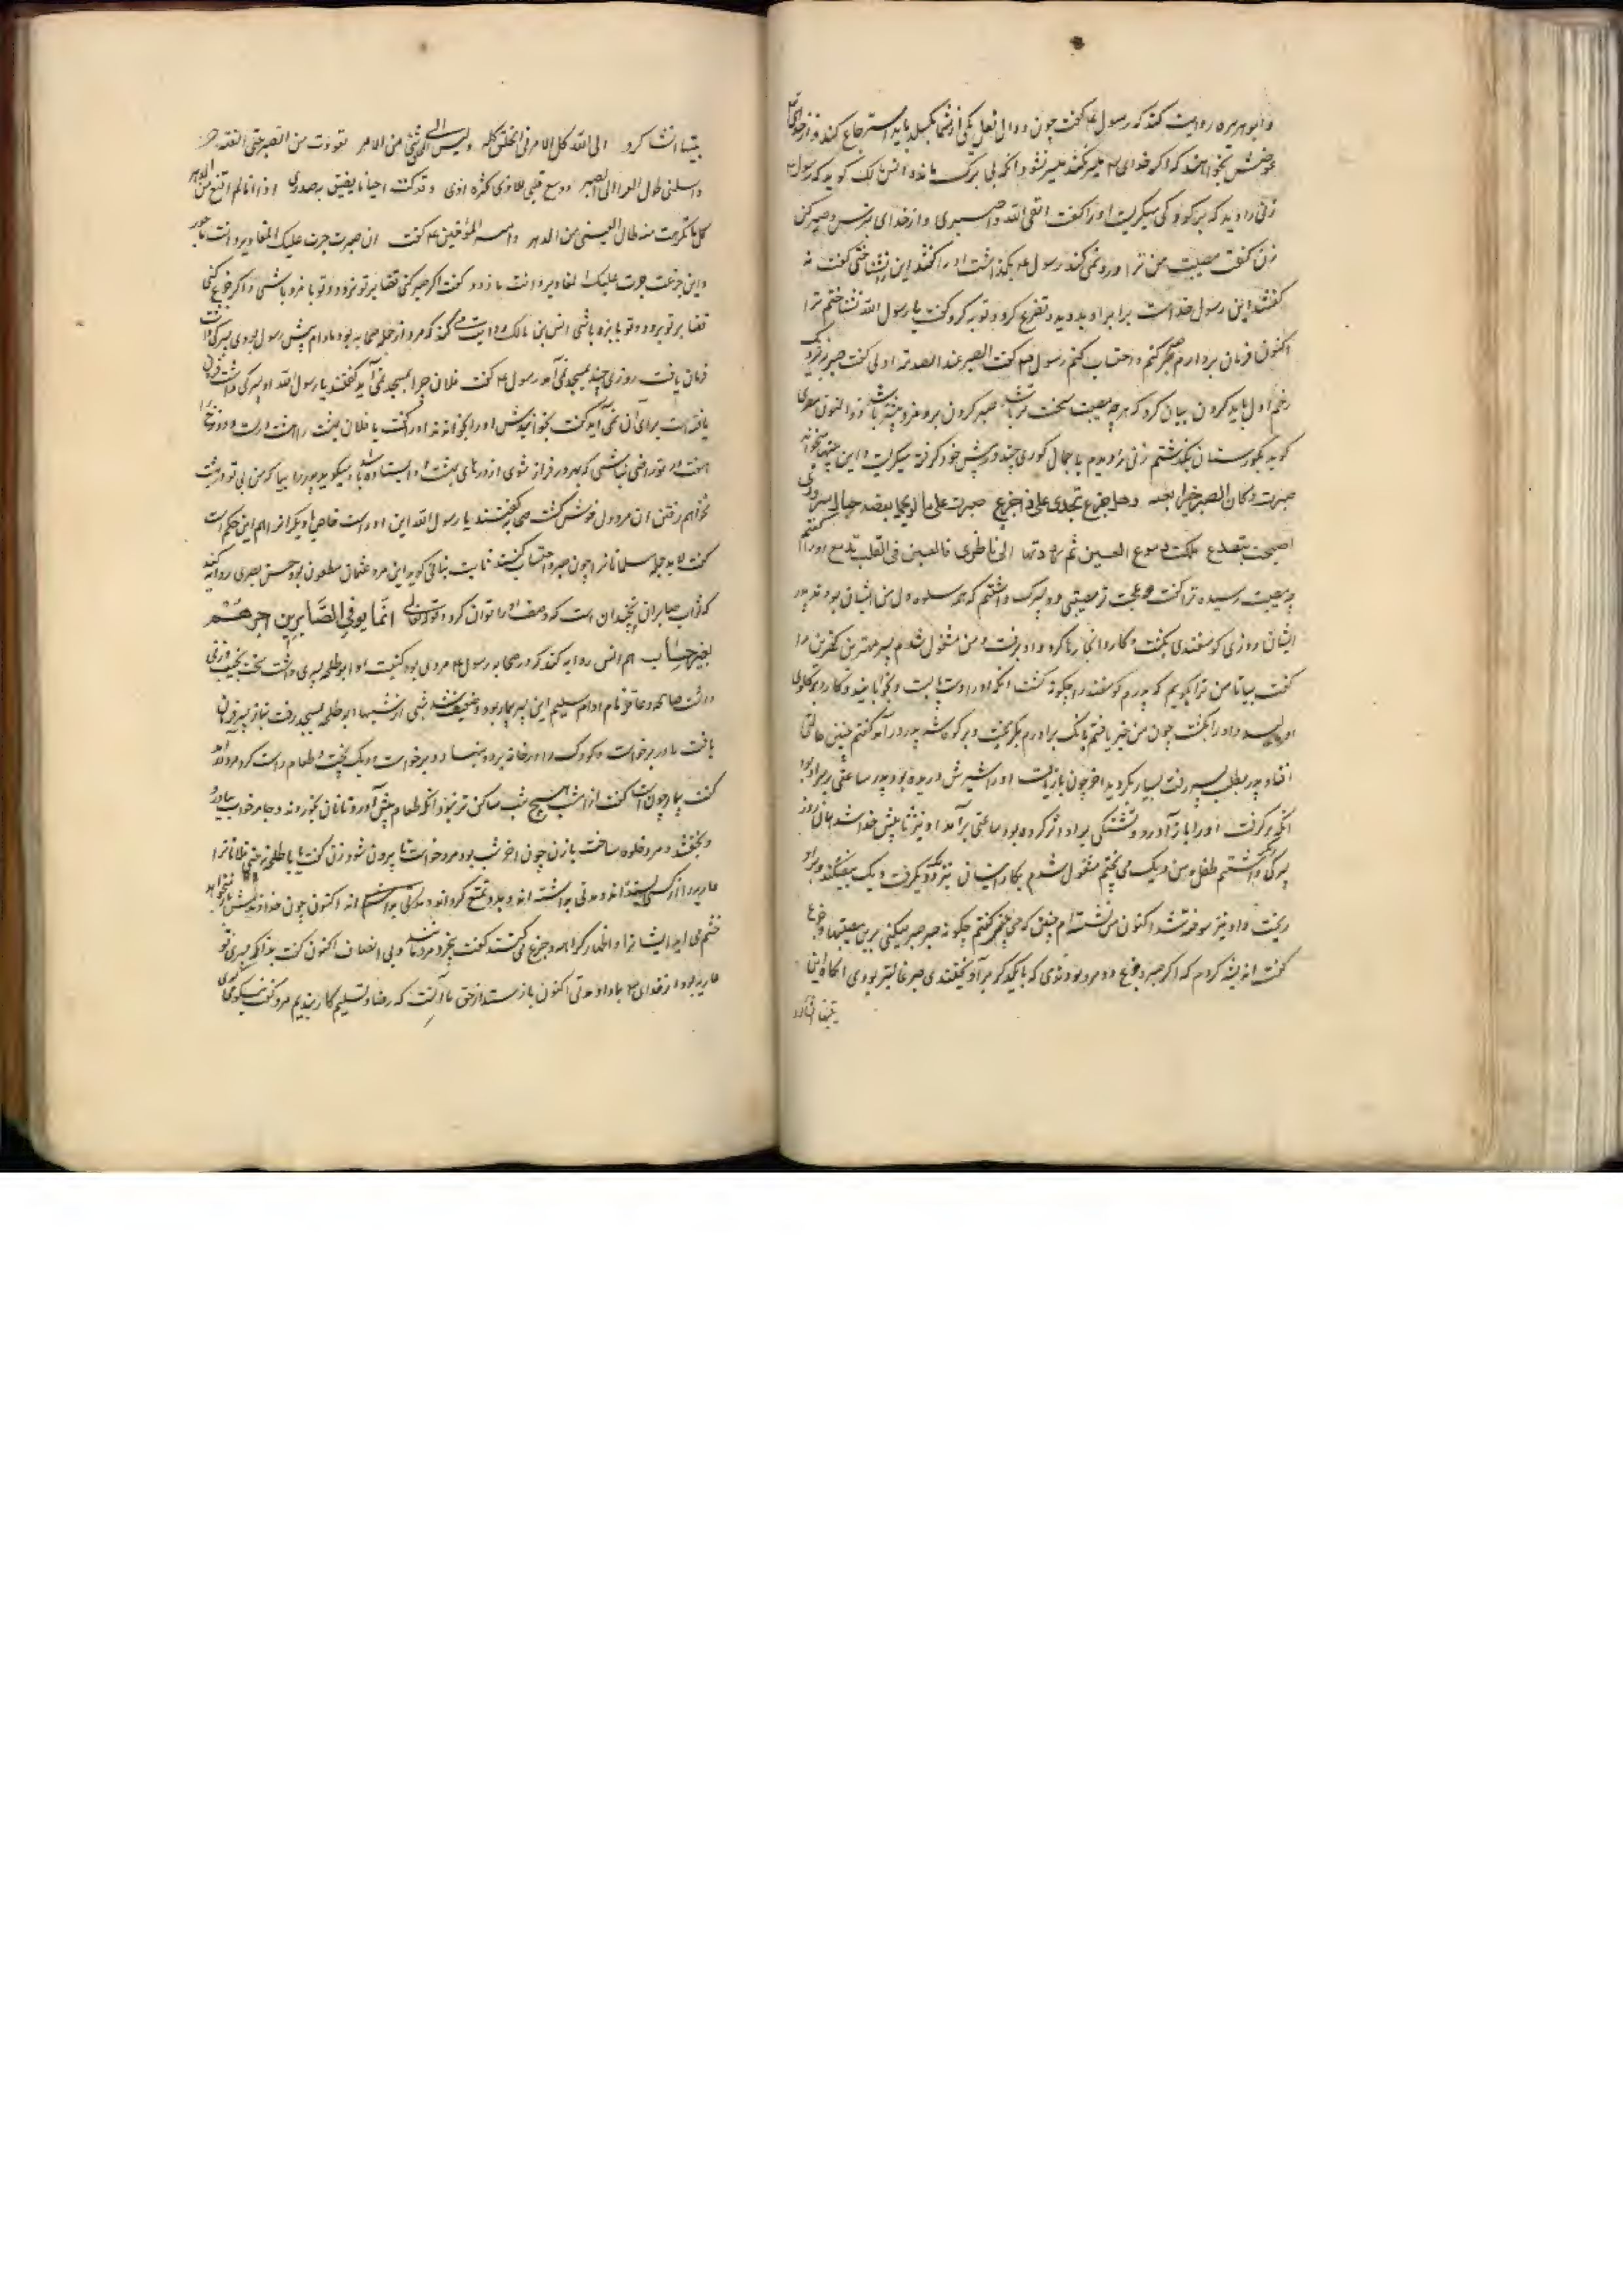 و ابو هریره روایت کند که رسول ع گفت چون دوال نعل یکی از شما بگسلد باید استرجاع کند و از خدای
عوضش بخواهد که اگر خدای میسر نکند میسر نشود آنکه بی برگ مانده انس مالک گوید که رسول
زنی را دید که بر کودکی میگریست او را گفت اتقی الله و اصبری و از خدای بترس و صبر کن
زن گفت مصیبت من ترا درد نمی کند رسول ع بگذاشت او را گفتند این را نشناختی گفت نه
گفتند این رسول خداست برابر او بدوید و تضرع کرد و توبه کرد و گفت یا رسول الله نشناختم ترا
اکنون فرمان بردارم صبر کنم و احتساب کنم رسول گفت الصبر عند الصدمة الاولی گفت صبر بر
زخم اول باید کردن بیان کرد که هر چه مصیبت سخت تر باشد صبر کردن برو مزد بیشتر باشد و ذوالنون مصری
گوید بگورستان بگذشتم زنی را دیدم با جمال گوری چند در پیش خود گرفته میگریست و این بیتها میخواند
صبرت و کان الصبر خیر مغبة و هل جزع یجدی علی فاجزع صبرت علی ما لو تحمل بعضه جبال
اصبحت تتصدع ملکت دموع العین ثم رددتها الی ناظری فالعین فی القلب تدمع او را گفتم
چه مصیبت رسیده ترا گفت عجب تر مصیبتی دو پسرک داشتم که همه سلوه دل من ایشان بودند پدر
ایشان روزی گوسفندی بکشت و کارد آنجا رها کرد و او برفت و من مشغول شدم پسر مهترین کهترین را
گفت بیا تا من ترا بگویم که پدرم گوسفند را چگونه کشت آنگه او را دست پا ببست و بخوابانید و کارد بر گلوی
او و او را بکشت چون من خبر یافتم بانگ برادرم بگریخت و بر کوه شد پدر در آمد گفتم چنین حالتی
افتاد پدر بطلب پسر رفت بسیار بگردید آخر چون بازیافت او را شیرش دریده بود پدر ساعتی بر
آنگه برگرفت او را باز آورد و تشنگی بر او اثر کرده بود ساعتی برآمد او نیز پیش خدا شد همان روز
پسرکی دیگر داشتم طفل و من دیگ می پختم مشغول شدم بکار ایشان دیگ بیفکند و بر او
ریخت و او نیز سوخته شد اکنون من نشسته ام چنین که می بینی گفتم چگونه صبر میکنی برین مصیبتها و جزع
گفت اندیشه کردم که اگر صبر و جزع دو مرد بودندی که با یکدیگر برآویختندی صبر غالبتر بودی آنگاه این
بیتها انشا کرد الی الله کل الامر فی الخلق کله و لیس الی شیئ من الامر تعودت من الصبر حتی الفته
و اسلمنی طول البلاء الی الصبر و وسع قلبی للاذی کثرة اذی و قد کنت احیانا یضیق به صدری اذا انا لم اقنع من الدهر
کل ما تکرهت منه طال العیشی من الدهر و امیر المؤمنین ع گفت ان صبرت جرت علیک المقادیر و انت ماجور
و این جزعت جرت علیک المقادیر و انت مازور گفت اگر صبر کنی قضا بر تو برود و تو با مزد باشی و اگر جزع کنی
قضا بر تو برود و تو با بزه باشی انس بن مالک روایت کند که مردی از جمله صحابه بود مادام پیش رسول بودی پسرکی داشت
فرمان یافت روزی چند بمسجد نمی آمد رسول ع گفت فلان چرا بمسجد نمی آید گفتند یا رسول الله او پسرکی داشت فرمان
یافته است برای آن نمی آید گفت بخوانیدش او را بخواندند او را گفت یا فلان بهشت را هشت درست و دوزخ را
هفت در تو راضی نباشی که بهر در فراز شوی از درهای بهشت او ایستاده باشد و میگوید پدر را بیا که من بی تو در بهشت
نخواهم رفتن آن مرد دل خوش گشت صحابه گفتند یا رسول الله این او راست خاص یا دیگران را هم این حکم است
گفت لا بد جمله مسلمانان را چون صبر و احتساب کنند ثابت بنانی گوید این مرد عثمان مظعون بود حسن بصری روایت کند
که ثواب صابران نچندان است که وصف او را توان کرد و قوله تعالی انما یوفی الصابرین اجرهم
بغیر حساب هم انس روایت کند که در صحابه رسول ع مردی بود کنیت او ابو طلحه پسری داشت سخت نجیب و زنی
داشت صالحه و عاقله نام او ام سلیم این پسر بیمار بود و ضعیف شد شبی از شبها ابو طلحه بمسجد رفت بنماز پسر فرمان
یافت مادر برخاست و کودک را در خانه برد و بنهاد و برخاست و دیگ پخت و طعام راست کرد مرد آمد
گفت بیمار چون است گفت از امشب هیچ شب ساکن تر نبود آنگه طعام پیش آورد و تا نان بخوردند و جامه خواب بیاورد
و بخفتند و مرد خلوه ساخت با زن چون آخر شب بود مرد خواست تا بیرون شود زن گفت یا با طلحه نبینی فلانان را
عاریه از کسی بستدند و مدتی بداشته اند و بدو تمتع کرده اند و مدتی اکنون چون خداوندش باز میخواهد
خشم می آید ایشانرا و اظهار کراهه و جزع می کنند گفت بیخرد مردمانند و بی انصاف اکنون گفت بدانکه پسری تو
عاریه بود از خدای با ما داده مدتی اکنون باز ستد از حق ما آنست که رضا و تسلیم کار بندیم مرد گفت نیکو می گوئی